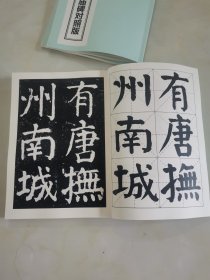 碑对照版
有唐撫
州南城
有唐撫
州南城